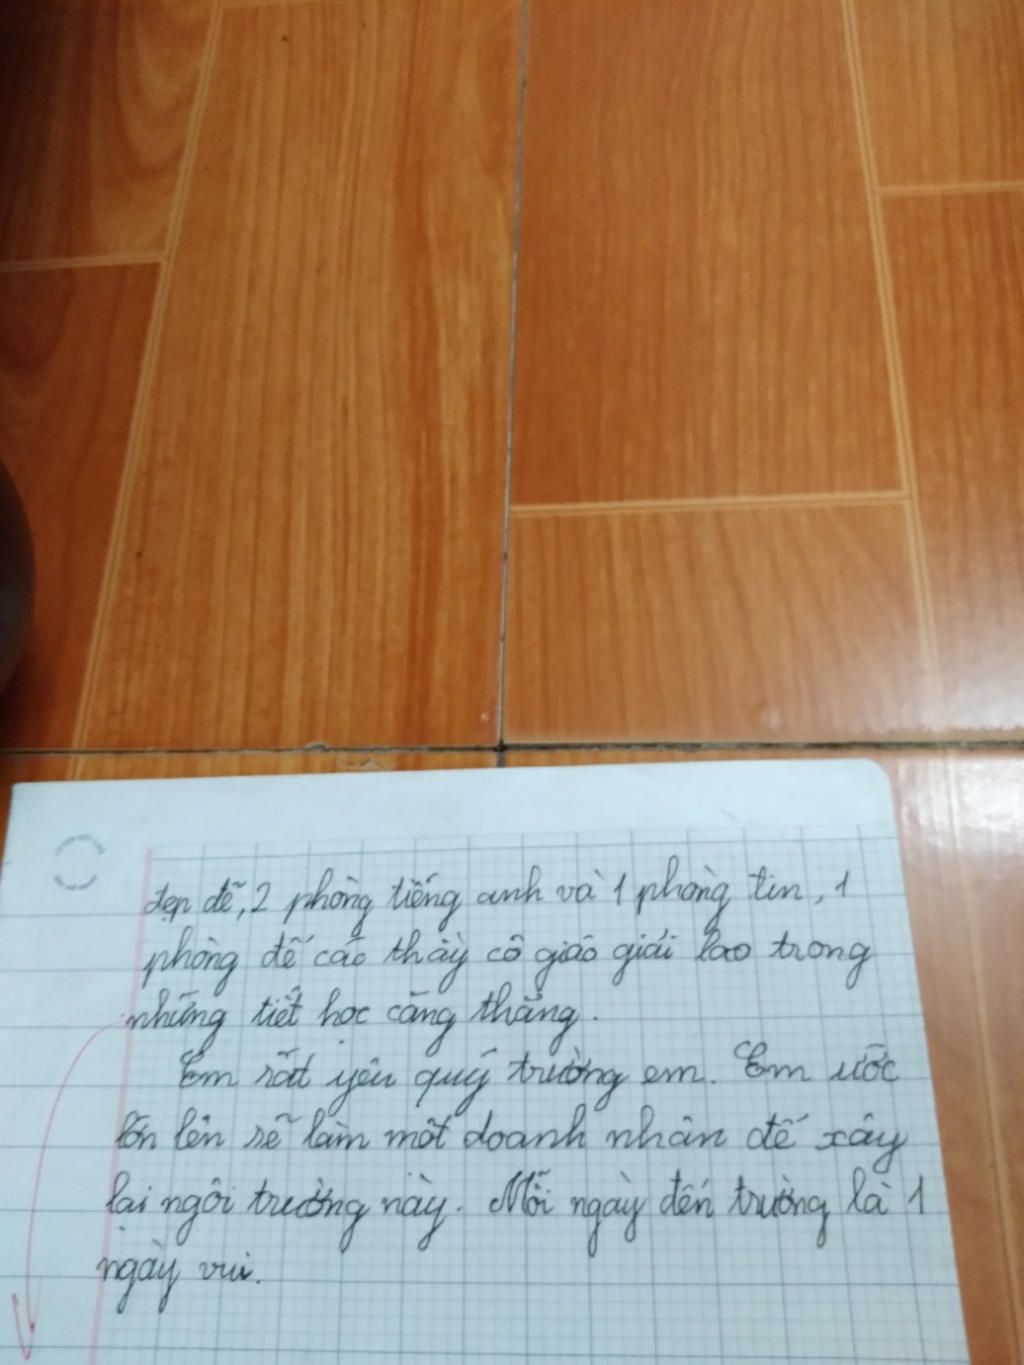 đẹp đẽ, 2 phòng tiếng anh và 1 phòng tin, 1
phòng để các thầy cô giáo giải lao trong
những tiết học căng thẳng.
Em rất yêu quý trường em. Em ước
lớn lên sẽ làm một doanh nhân để xây
lại ngôi trường này. Mỗi ngày đến trường là 1
ngày vui.